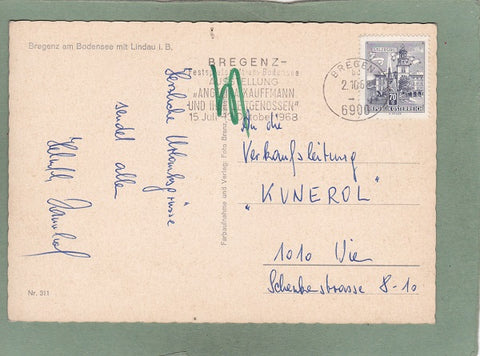 Bregenz am Bodensee mit Lindau i. B.
BREGENZ-
Festspielstadt am Bodensee
AUSSTELLUNG
"ANGELIKA KAUFFMANN
UND IHRE ZEITGENOSSEN"
15. Juli Oktober 1968
BREGENZ
2.10.68
6900
SALZBURG
70
REPUBLIK ÖSTERREICH
Herzliche Urlaubsgrüsse
sendet allen
Farbaufnahme und Verlag: Foto
An die
Verkaufsleitung
„KUNEROL"
1010 Wien
Schenkenstrasse 8-10
Nr. 311